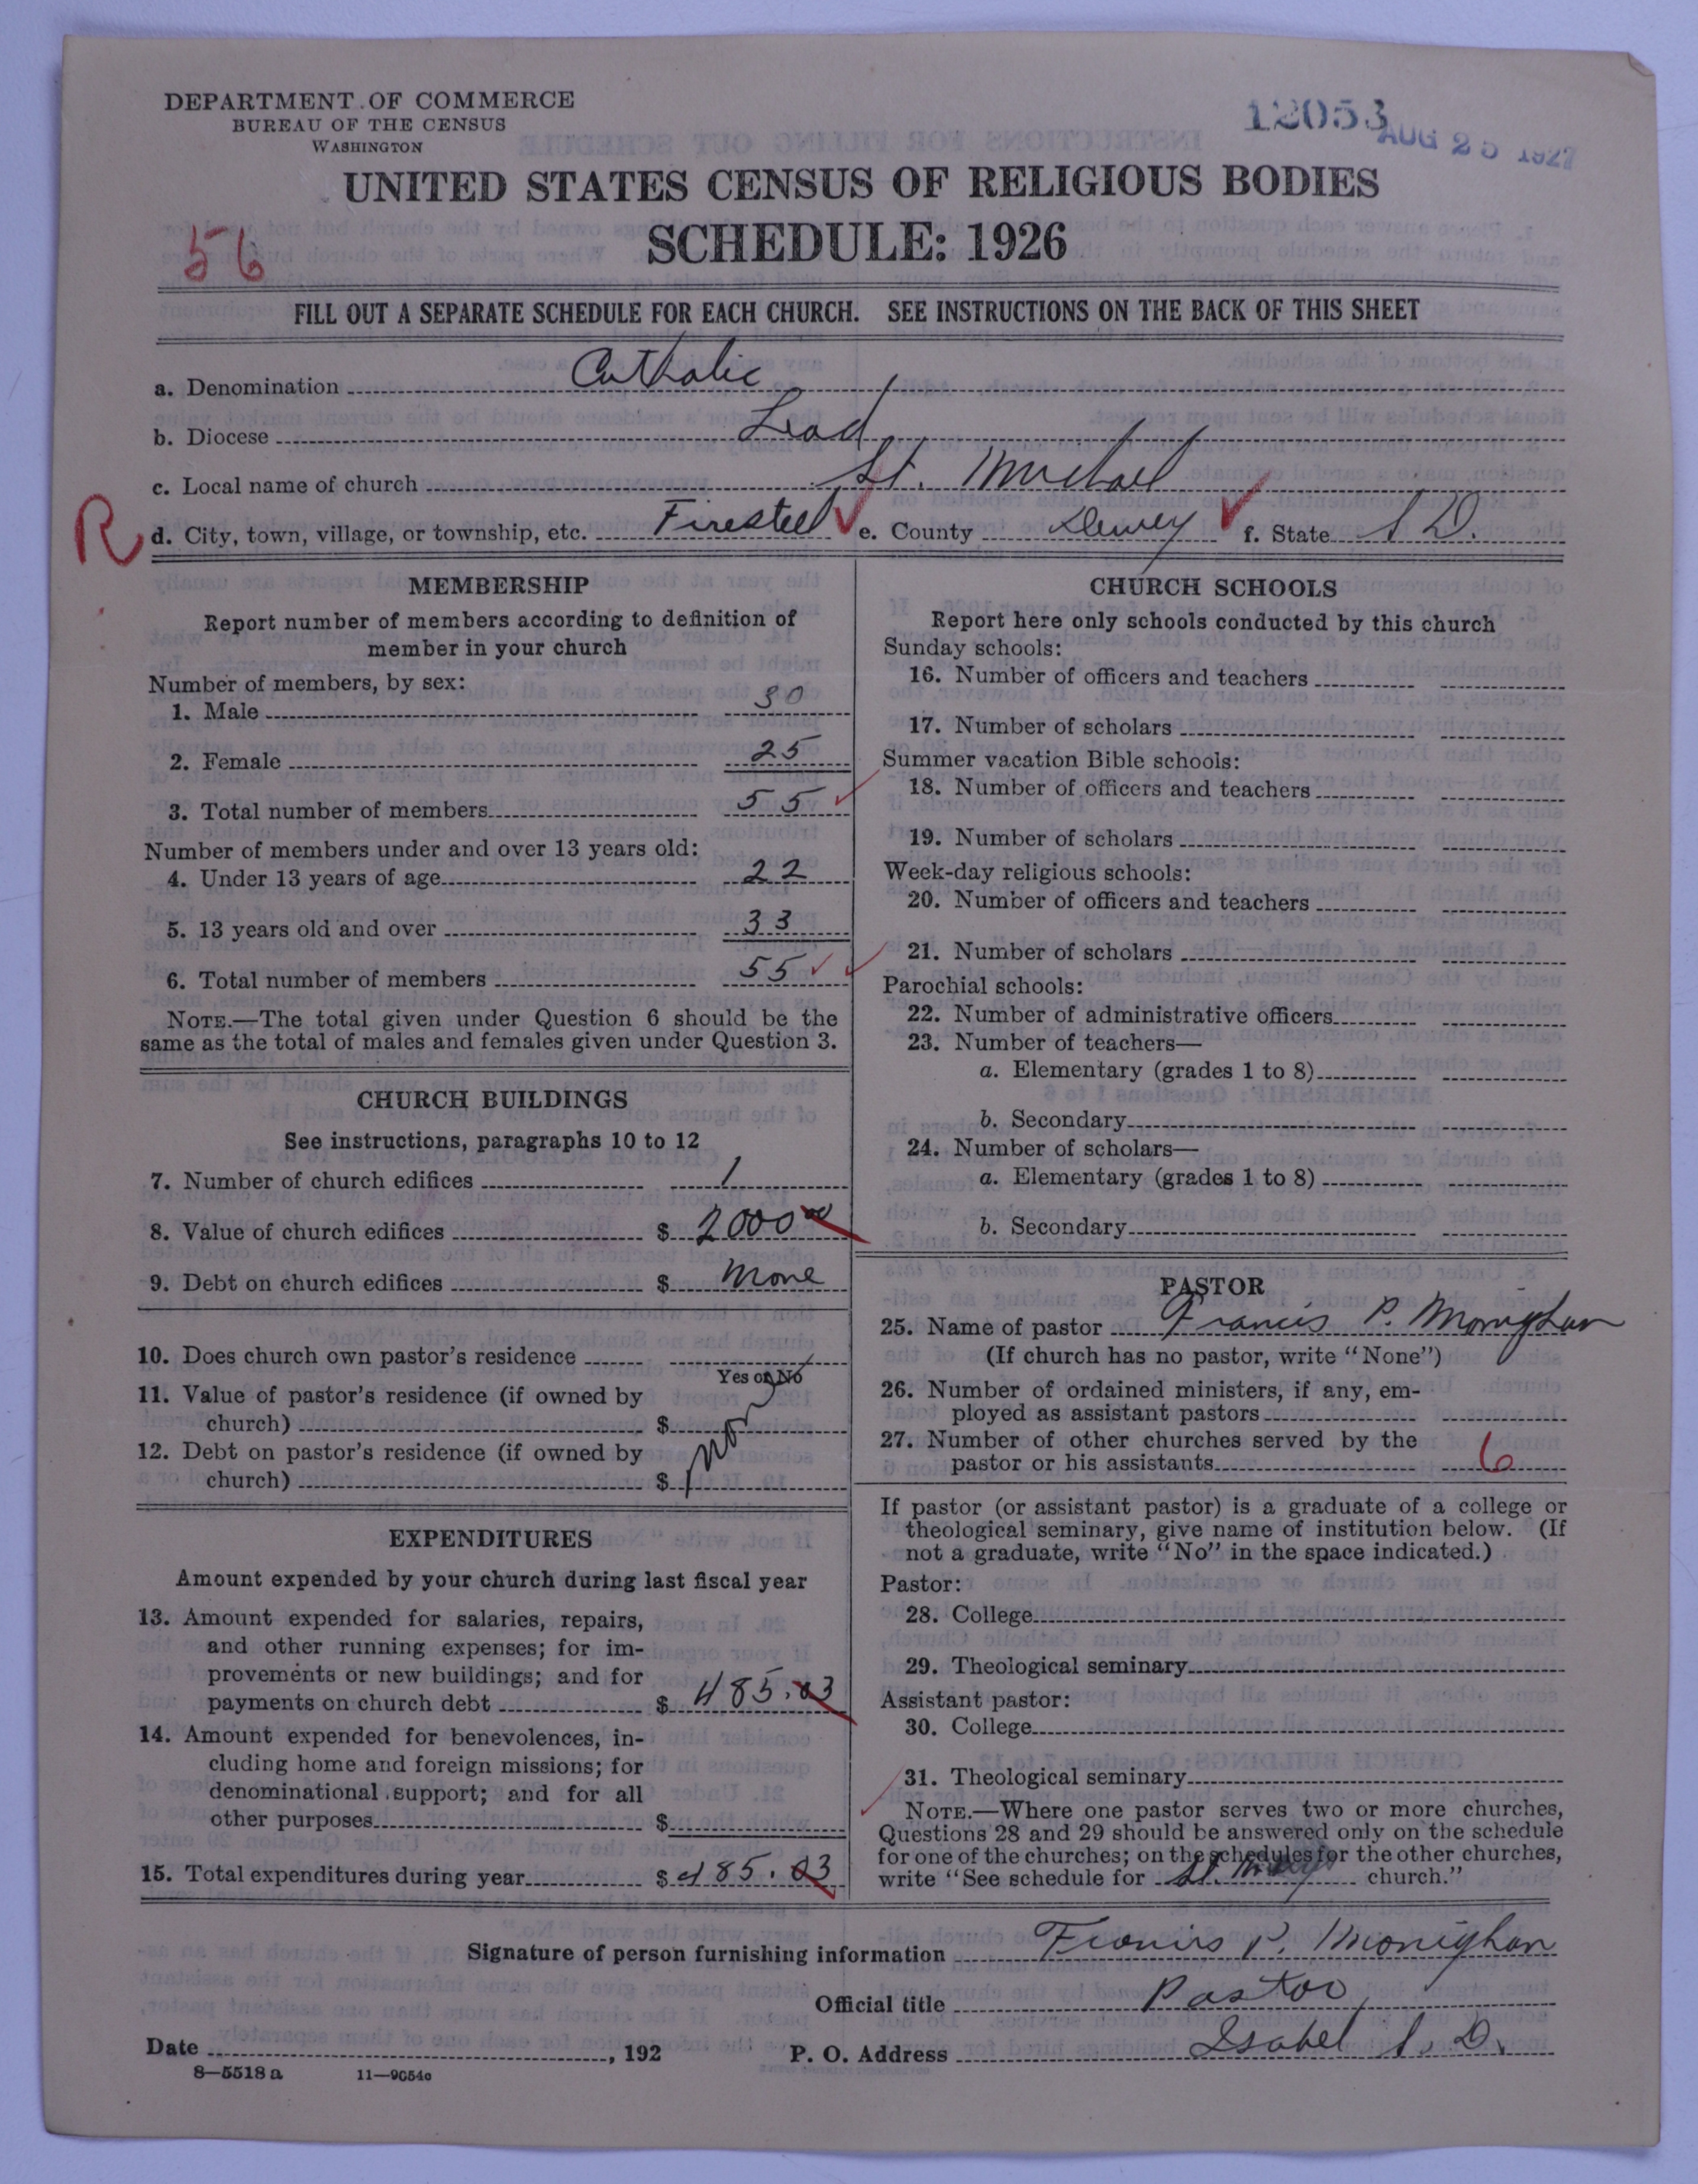 DEPARTMENT OF COMMERCE
BUREAU OF THE CENSUS
WASHINGTON
12053
AUG 25 1927
UNITED STATES CENSUS OF RELIGIOUS BODIES
SCHEDULE: 1926
56
FILL OUT A SEPARATE SCHEDULE FOR EACH CHURCH. SEE INSTRUCTIONS ON THE BACK OF THIS SHEET
a. Denomination Catholic
b. Diocese Lead
c. Local name of church St. Michael
R d. City, town, village, or township, etc. Firesteel e. County Dewey f. State S D.
MEMBERSHIP
Report number of members according to definition of
member in your church
Number of members, by sex:
1. Male 30
2. Female 25
3. Total number of members 55
Number of members under and over 13 years old:
4. Under 13 years of age 22
5. 13 years old and over 33
6. Total number of members 55
NOTE.—The total given under Question 6 should be the
same as the total of males and females given under Question 3.
CHURCH BUILDINGS
See instructions, paragraphs 10 to 12
7. Number of church edifices 1
8. Value of church edifices $ 2000 00
9. Debt on church edifices $ None
10. Does church own pastor's residence
Yes or No
11. Value of pastor's residence (if owned by
church) $
12. Debt on pastor's residence (if owned by
church) $
EXPENDITURES
Amount expended by your church during last fiscal year
13. Amount expended for salaries, repairs,
and other running expenses; for im-
provements or new buildings; and for
payments on church debt $ 485.03
14. Amount expended for benevolences, in-
cluding home and foreign missions; for
denominational support; and for all
other purposes $
15. Total expenditures during year $ 485.03
CHURCH SCHOOLS
Report here only schools conducted by this church
Sunday schools:
16. Number of officers and teachers
17. Number of scholars
Summer vacation Bible schools:
18. Number of officers and teachers
19. Number of scholars
Week-day religious schools:
20. Number of officers and teachers
21. Number of scholars
Parochial schools:
22. Number of administrative officers
23. Number of teachers—
a. Elementary (grades 1 to 8)
b. Secondary
24. Number of scholars—
a. Elementary (grades 1 to 8)
b. Secondary
PASTOR
25. Name of pastor Francis P. Monighan
(If church has no pastor, write "None")
26. Number of ordained ministers, if any, em-
ployed as assistant pastors
27. Number of other churches served by the
pastor or his assistants 6
If pastor (or assistant pastor) is a graduate of a college or
theological seminary, give name of institution below. (If
not a graduate, write "No" in the space indicated.)
Pastor:
28. College
29. Theological seminary
Assistant pastor:
30. College
31. Theological seminary
NOTE.—Where one pastor serves two or more churches,
Questions 28 and 29 should be answered only on the schedule
for one of the churches; on the schedules for the other churches,
write "See schedule for St. church."
Signature of person furnishing information Francis P. Monighan
Official title Pastor
Date , 192
P. O. Address Isabel S. D.
8—5518 a 11—9054c